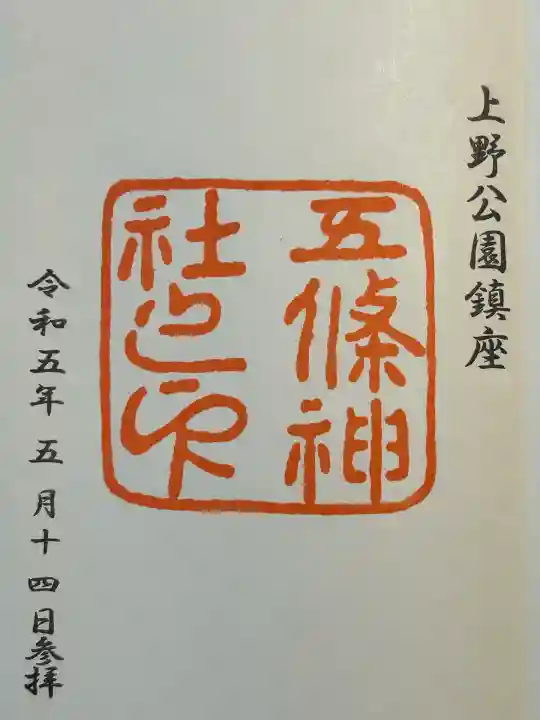 上野公園鎮座
五條神
社之印
令和五年五月十四日参拝